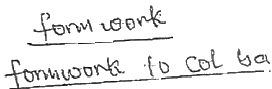 formwork
formwork to Col ba